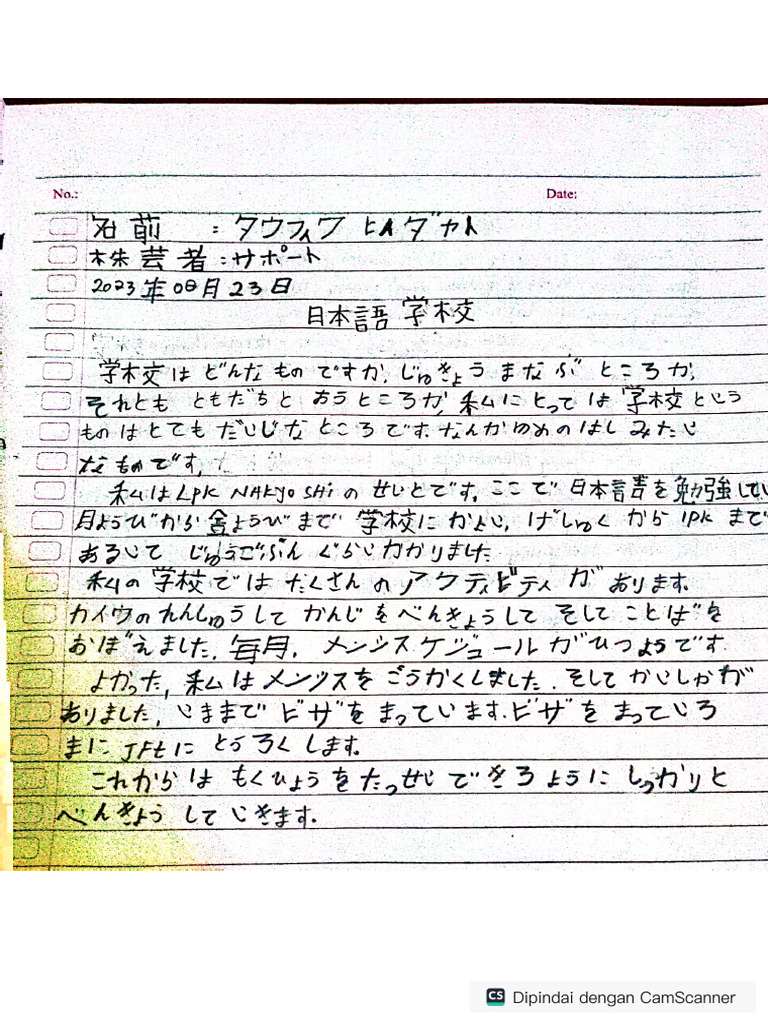 No.:
Date:
名前 : タウフィク ヒルダヤト
株芸者 : サポート
2023年08月23日
日本語学校
学校はどんなものですか、じゅきょうまなぶところか、
それとも ともだちと おうところか、私にとっては学校という
ものはとてもだいじなところです。なんかゆめのはしみたい
なものです。
私はLPK NAKYOSHiのせいとです。ここで日本語を勉強してい
月ようびから金ようびまで 学校にかよい、げしゅくからlPKまで
あるいて じゅうごぶんぐらいかかりました
私の学校ではたくさんのアクティビティがおります。
カイワのれんしゅうして かんじをべんきょうして そしてことばを
おぼえました。毎月、メンシスケジュールがひつようです
よかった、私はメンツスをごうかくしました。そしてかいしゃが
ありました、いままでビザをまっています。ビザをまっている
まに、JFtにとうろくします。
これからはもくひょうをたっせいできるようにしっかりと
べんきょうしていきます。
CS Dipindai dengan CamScanner